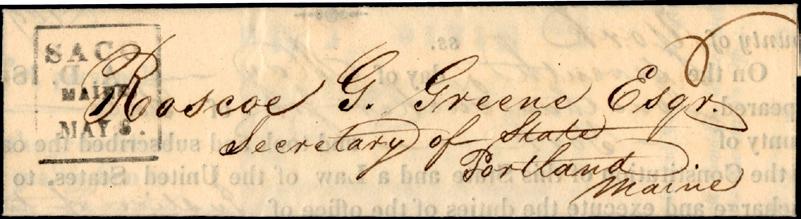 SACO
MAINE
MAY 8.
Roscoe G. Greene Esqr.
Secretary of State
Portland
Maine
County of York ss.
On the day of A. D. 18
peared
county of and subscribed the oa
the Constitution of this State and a Law of the United States. to
charge and execute the duties of the office of